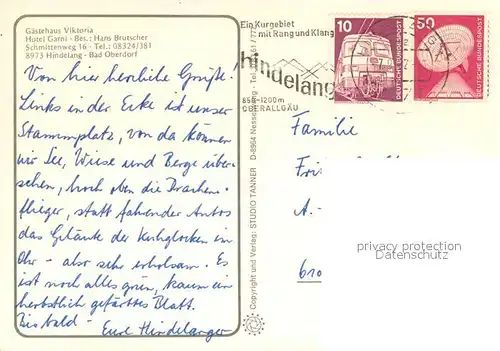 Gästehaus Viktoria
Hotel Garni · Bes.: Hans Brutscher
Schmittenweg 16 - Tel.: 08324/381
8973 Hindelang - Bad Oberdorf
Von hier herzliche Grüße.
Links in der Ecke ist unser
Stammplatz, von da können
wir See, Wiese und Berge über-
sehen, hoch oben die Drachen-
flieger, statt fahrender Autos
das Geläute der Kuhglocken im
Ohr - also sehr erholsam. Es
ist noch alles grün, kaum ein
herbstlich gefärbtes Blatt.
Bis bald - Eure Hindelanger
Copyright und Verlag: STUDIO TANNER D-8964 Nesselwang
Ein Kurgebiet
mit Rang und Klang
hindelang
850-1200m
OBERALLGÄU
10
DEUTSCHE BUNDESPOST
50
DEUTSCHE BUNDESPOST
Familie
Fri
A.-
610
privacy protection
Datenschutz